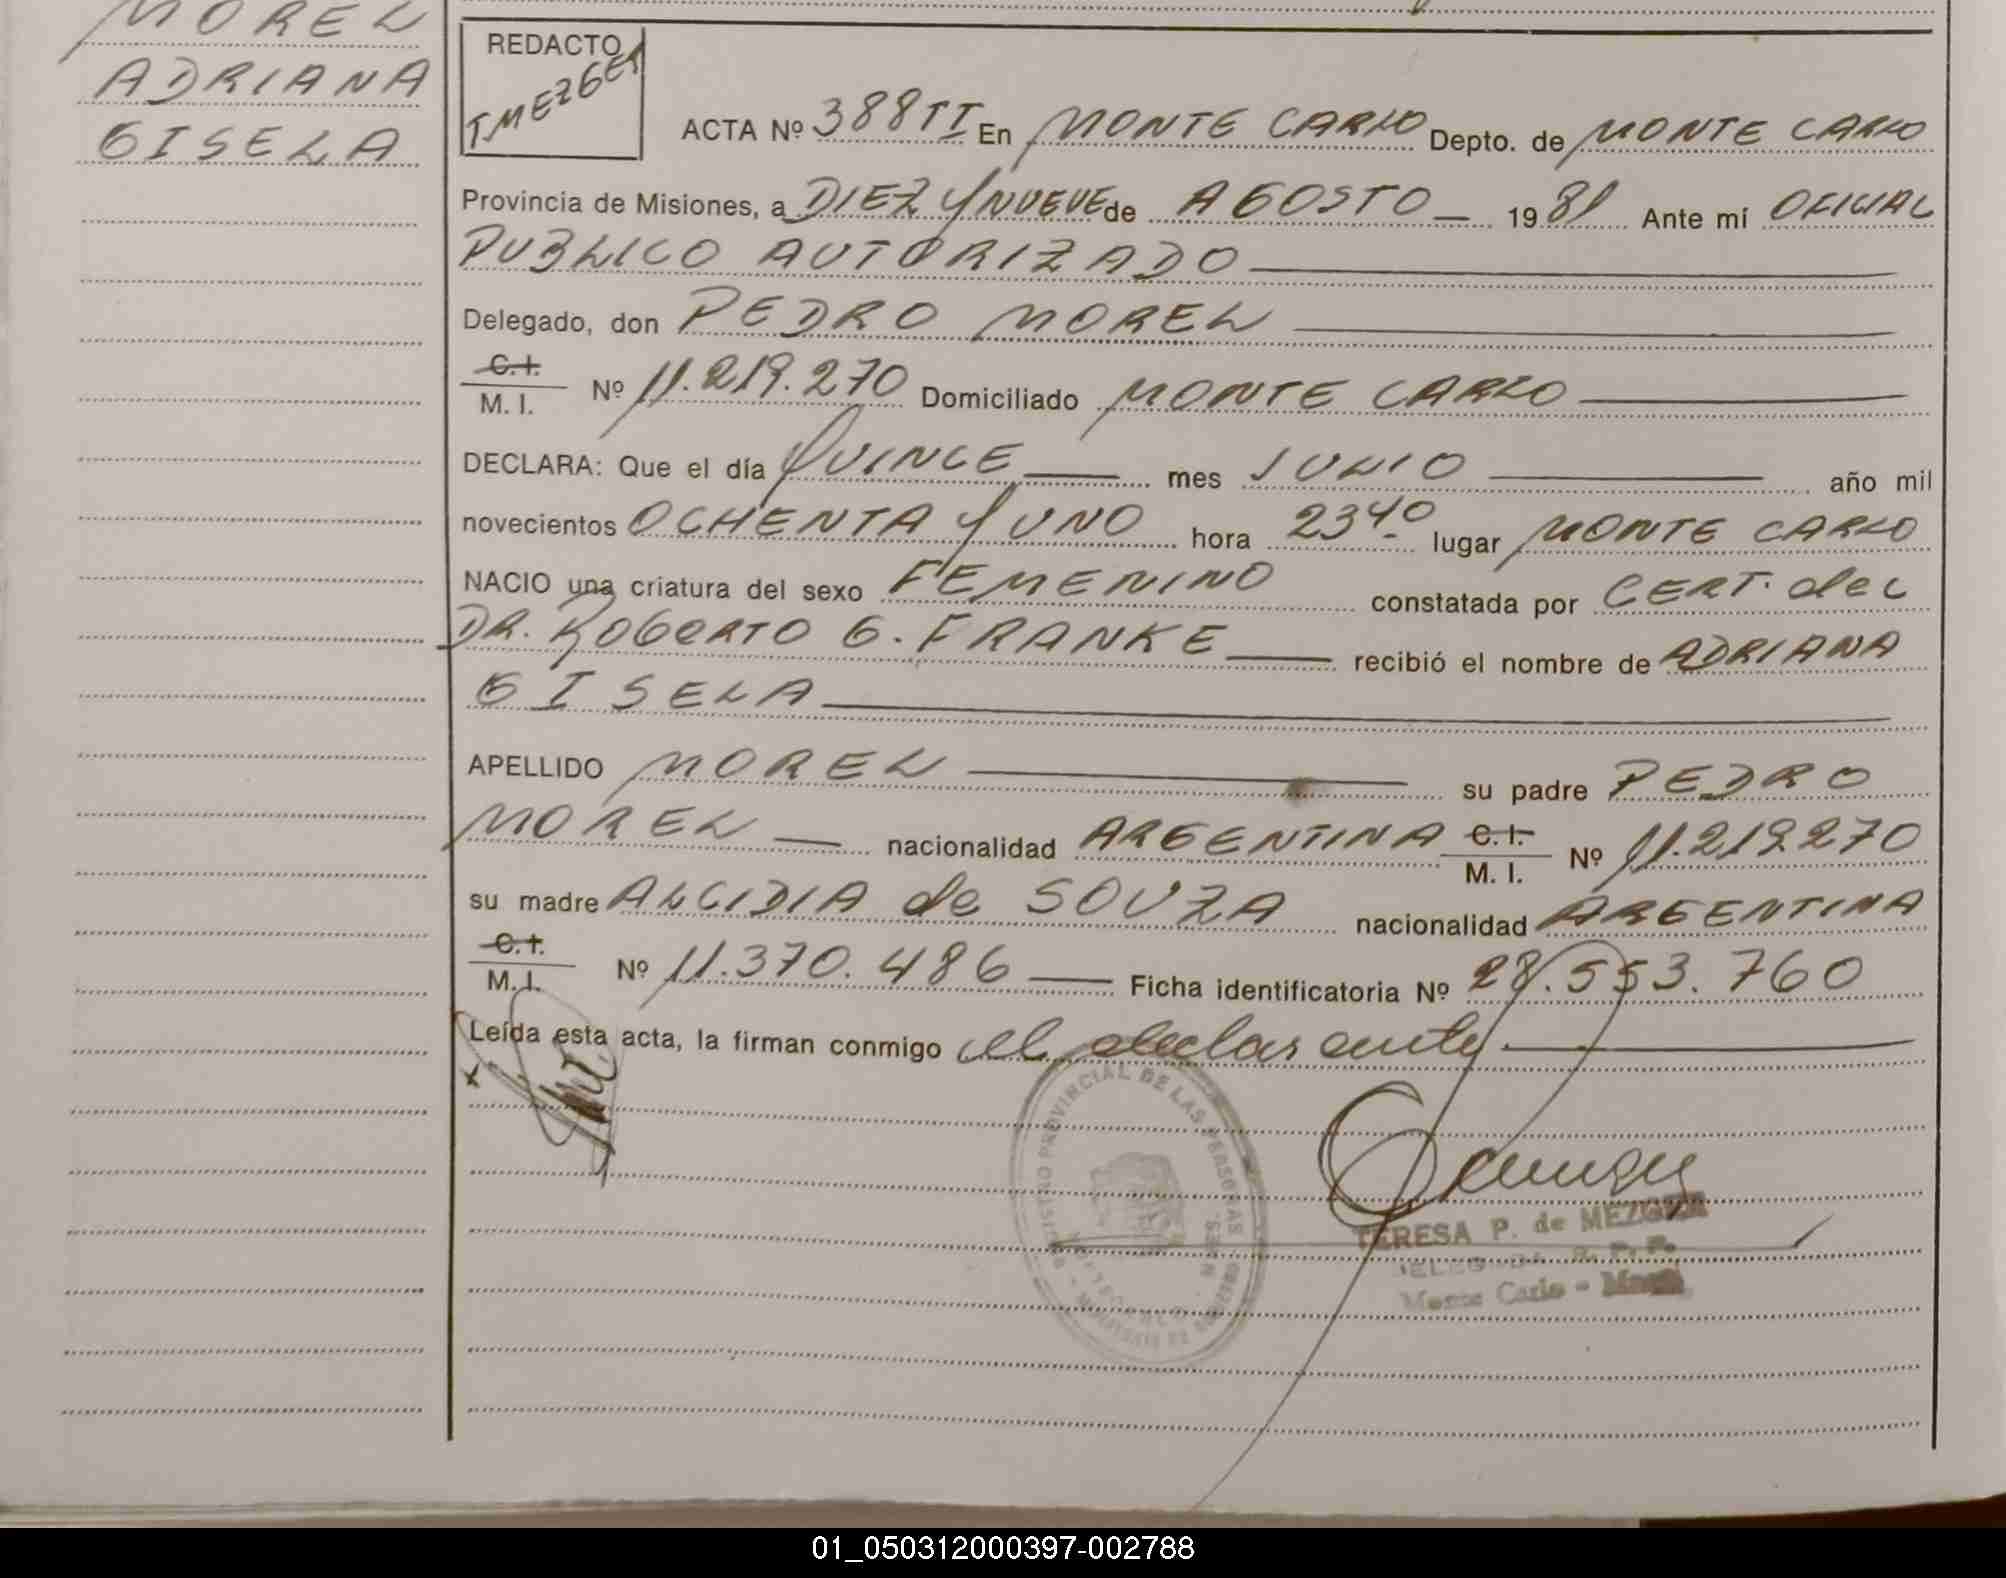 MOREL
ADRIANA
GISELA
REDACTO
TMEZGER
ACTA Nº 388 TI En MONTE CARLO Depto. de MONTE CARLO
Provincia de Misiones, a DIEZ Y NUEVE de AGOSTO 1981 Ante mí OFICIAL
PUBLICO AUTORIZADO
Delegado, don PEDRO MOREL
C.I.
M. I. Nº 11.219.270 Domiciliado MONTE CARLO
DECLARA: Que el día QUINCE mes JULIO año mil
novecientos OCHENTA Y UNO hora 2340 lugar MONTE CARLO
NACIO una criatura del sexo FEMENINO constatada por CERT. del
DR. ROBERTO G. FRANKE recibió el nombre de ADRIANA
GISELA
APELLIDO MOREL su padre PEDRO
MOREL nacionalidad ARGENTINA C.I. M. I. Nº 11.219270
su madre ALCIDIA de SOUZA nacionalidad ARGENTINA
C.I.
M. I. Nº 11.370.486 Ficha identificatoria Nº 28.553.760
Leída esta acta, la firman conmigo el declarante
x
REGISTRO PROVINCIAL DE LAS PERSONAS
TERESA P. de MEZGER
DELEGADA R. P. P.
Monte Carlo - Mnes.
01_050312000397-002788